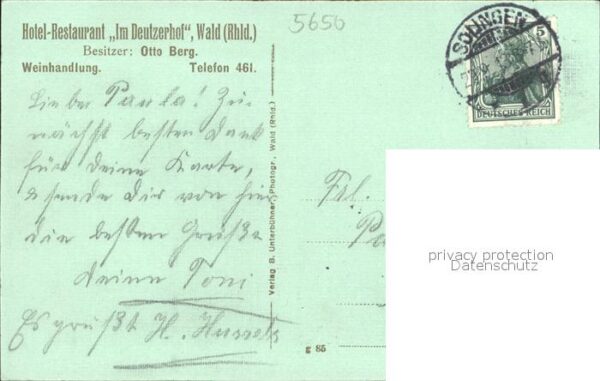 Hotel-Restaurant „Im Deutzerhof", Wald (Rhld.)
Besitzer: Otto Berg.
Weinhandlung. Telefon 461.
5650
Liebe Paula! Zu-
nächst besten Dank
für deine Karte,
sende dir von hier
die besten Grüße
deine Toni
Es grüßt H. Hussels
Verlag B. Unterbühner, Photogr., Wald (Rhld.)
g 85
SOLINGEN
5
DEUTSCHES REICH
Frl.
Pa
privacy protection
Datenschutz